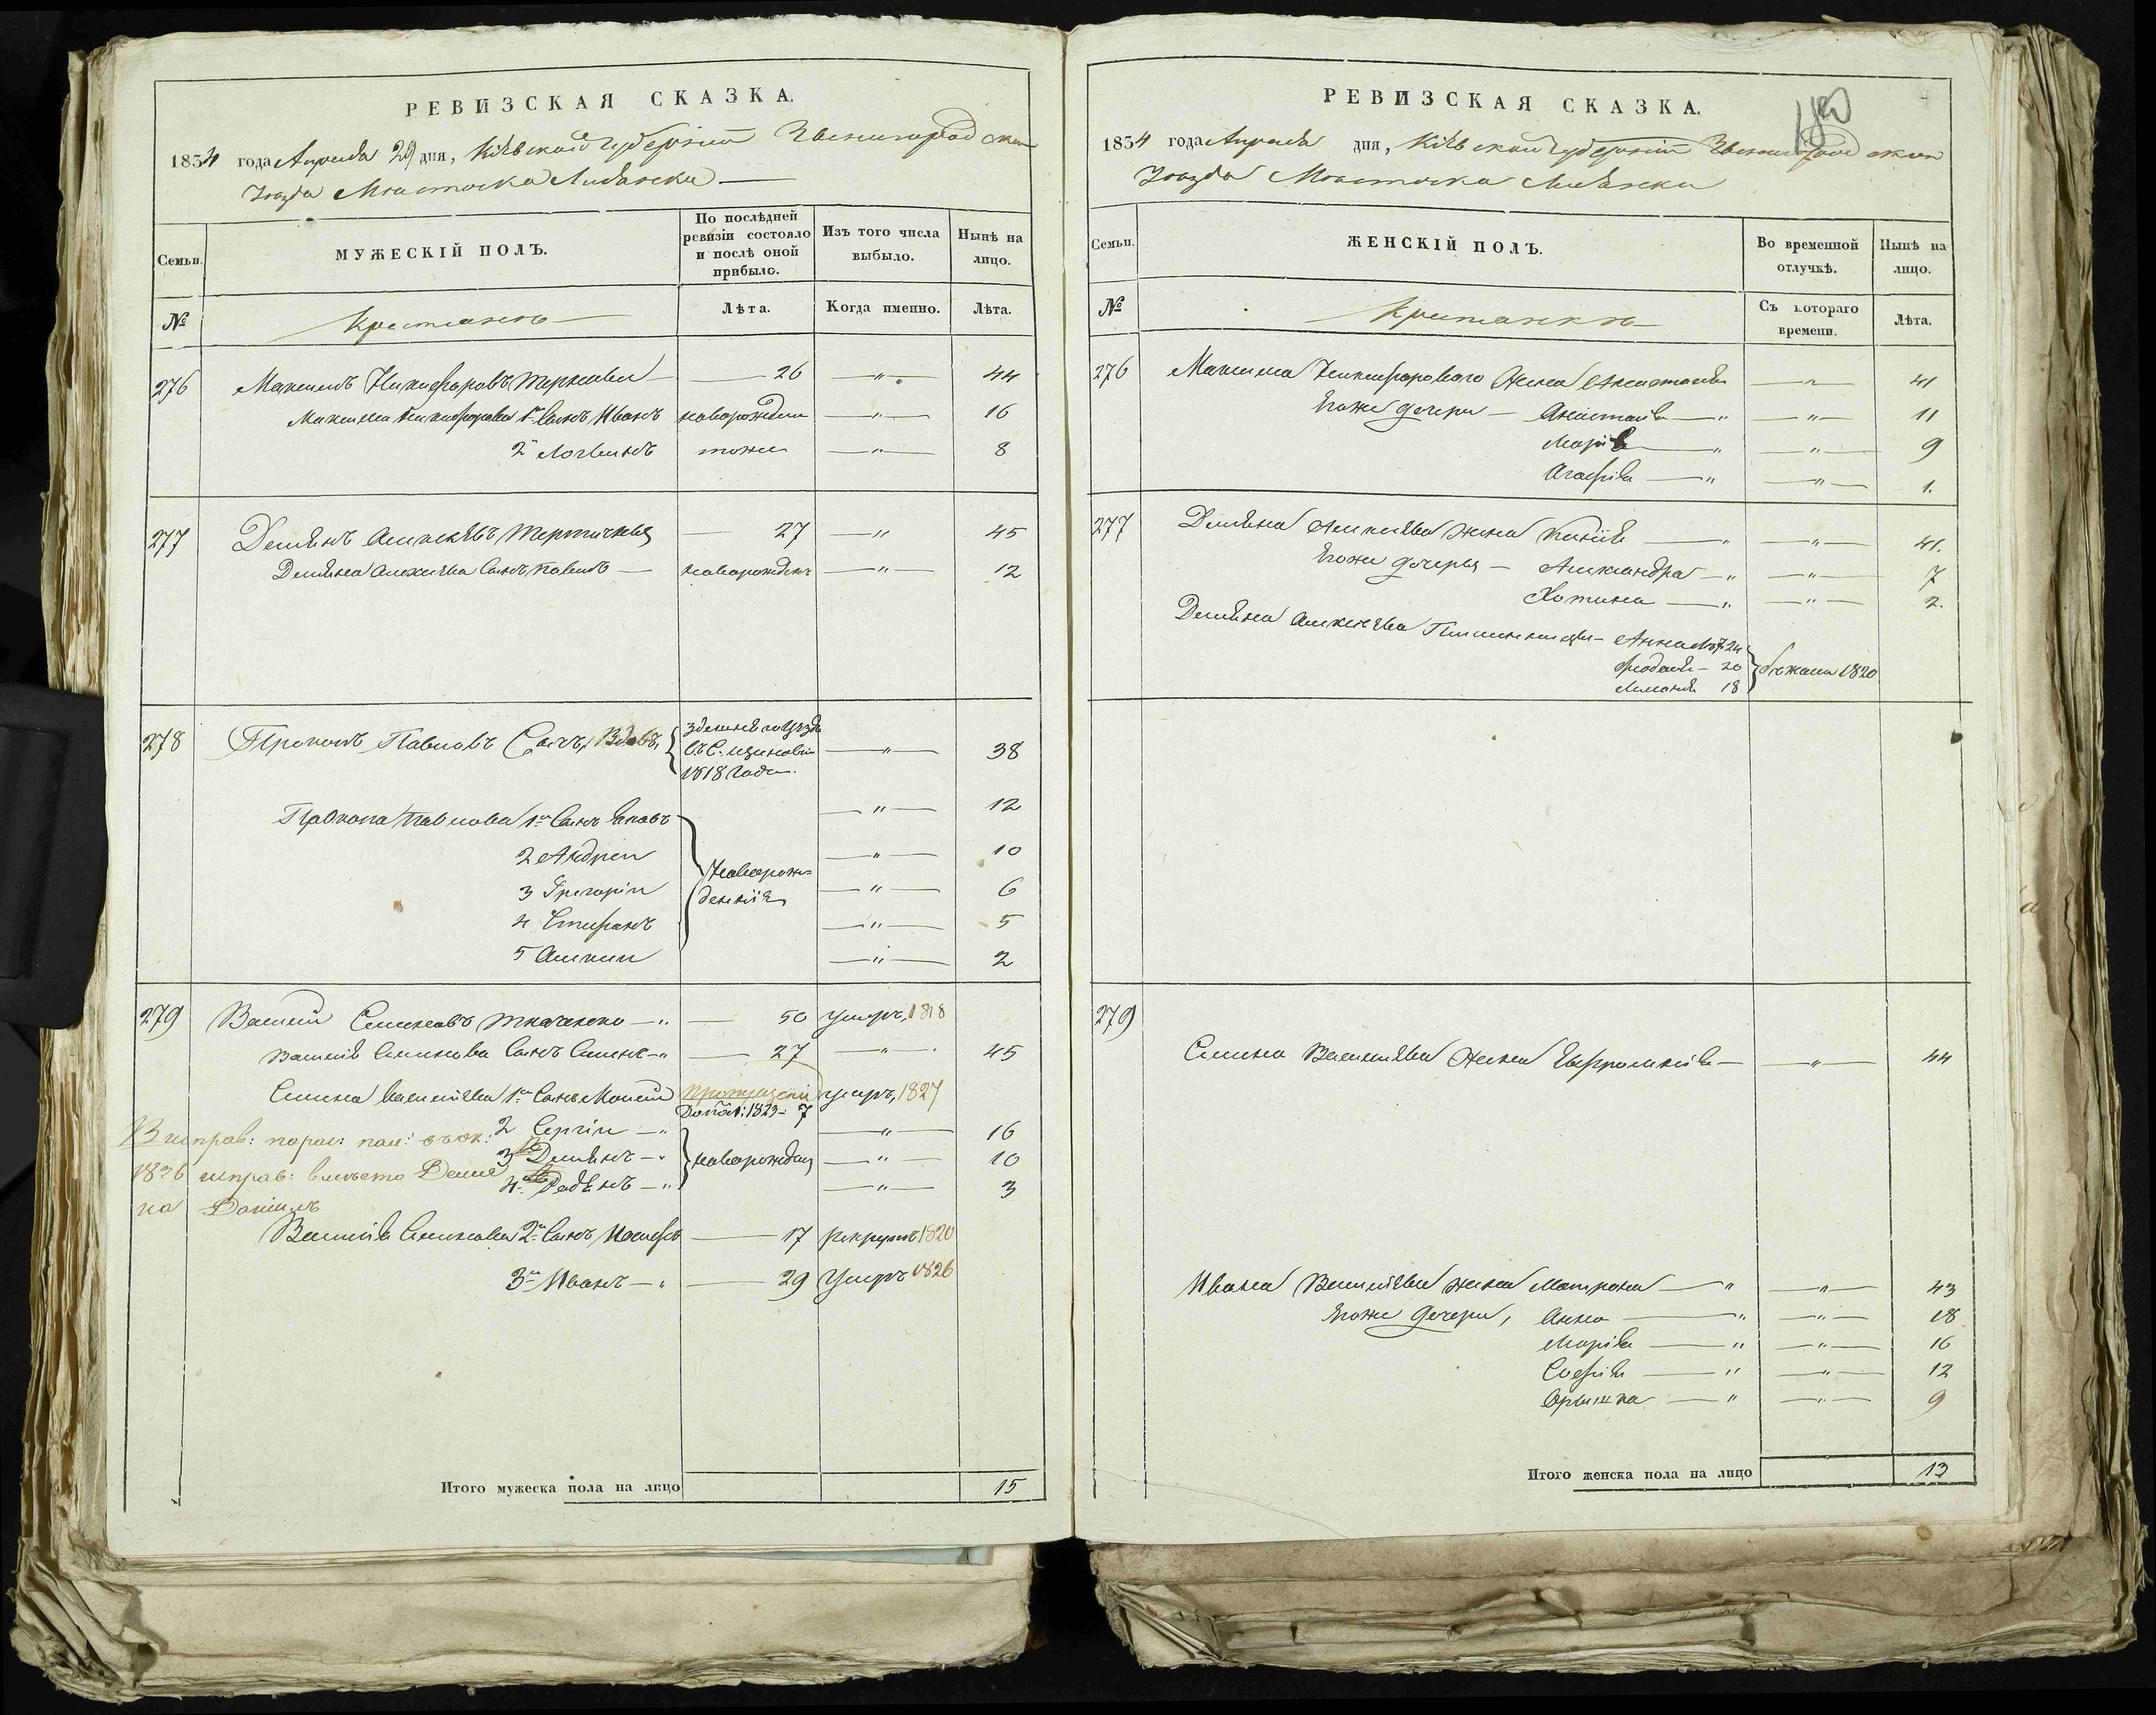 РЕВИЗСКАЯ СКАЗКА.
1834 года Апреля 29 дня, Кіевской Губерніи Звенигородскаго
Уезда Мѣстечка Лисянки
Семьи.
МУЖЕСКІЙ ПОЛЪ.
По послѣдней ревизіи состояло и послѣ оной прибыло.
Изъ того числа выбыло.
Нынѣ на лицо.
№
Крестьянъ
Лѣта.
Когда именно.
Лѣта.
276 Максимъ Никифоровъ — 26 — " — 44
Максима Никифорова 1й Сынъ Иванъ новорожден — " — 16
2й Логвинъ тоже — " — 8
277 Демьянъ Алексѣевъ — 27 — " 45
Демьяна Алексѣева Сынъ Павелъ — новорожденъ — " — 12
278 Прокопъ Павловъ Сычъ, Вдовъ,
1818 Года.
— " — 38
Прокопа Павлова 1й Сынъ Яковъ — " — 12
2 Андрей — " — 10
3 Григорій — " — 6
4 Стефанъ — " — 5
5 Алексей — " — 2
Новорожденнія
279 Василій Семеновъ Ткаченко — " — 50 умеръ, 1818
Василія Семенова Сынъ Семенъ — " — 27 — " — 45
Семена Василіева 1й Сынъ Моисей пропущеній умеръ, 1827
1823 — 7
2 Сергій — " — " — 16
3 Демьянъ — " новорожден — " — 10
4й — " — " — 3
1836 исправ: вместо Демья
на Даніилъ
Василія Семенова 2й Сынъ Иосифъ — 17 рекрутъ 1820
3й Иванъ — " — 29 Умеръ 1826
Итого мужеска пола на лицо
15
РЕВИЗСКАЯ СКАЗКА.
1834 года Апреля дня, Кіевской Губерніи Звенигородскаго
Уезда Мѣстечка Лисянки
Семьи.
ЖЕНСКІЙ ПОЛЪ.
Во временной отлучкѣ.
Нынѣ на лицо.
№
Крестьянкъ
Съ котораго времени.
Лѣта.
276 Максима Никифорового Жена Анастасія — " — 41
Егоже дочери — Анастасія — " — " — 11
Марія — " — " — 9
Агафія — " — " — 1.
277 Демьяна Алексѣева жена — " — " — 41.
Егоже дочерья — Александра — " — " — 7
Хотина — " — " — 2.
Демьяна Алексѣева Племянницы — Анна 24
Феодосія — 20
18
бежали 1820
279
Семена Василіева Жена Евфросинія — " — 44
Ивана Василіева жена Матрона — " — " — 43
Егоже дочери, Анна — " — " — 18
Марія — " — " — 16
Софія — " — " — 12
Орышка — " — " — 9
Итого женска пола на лицо
13